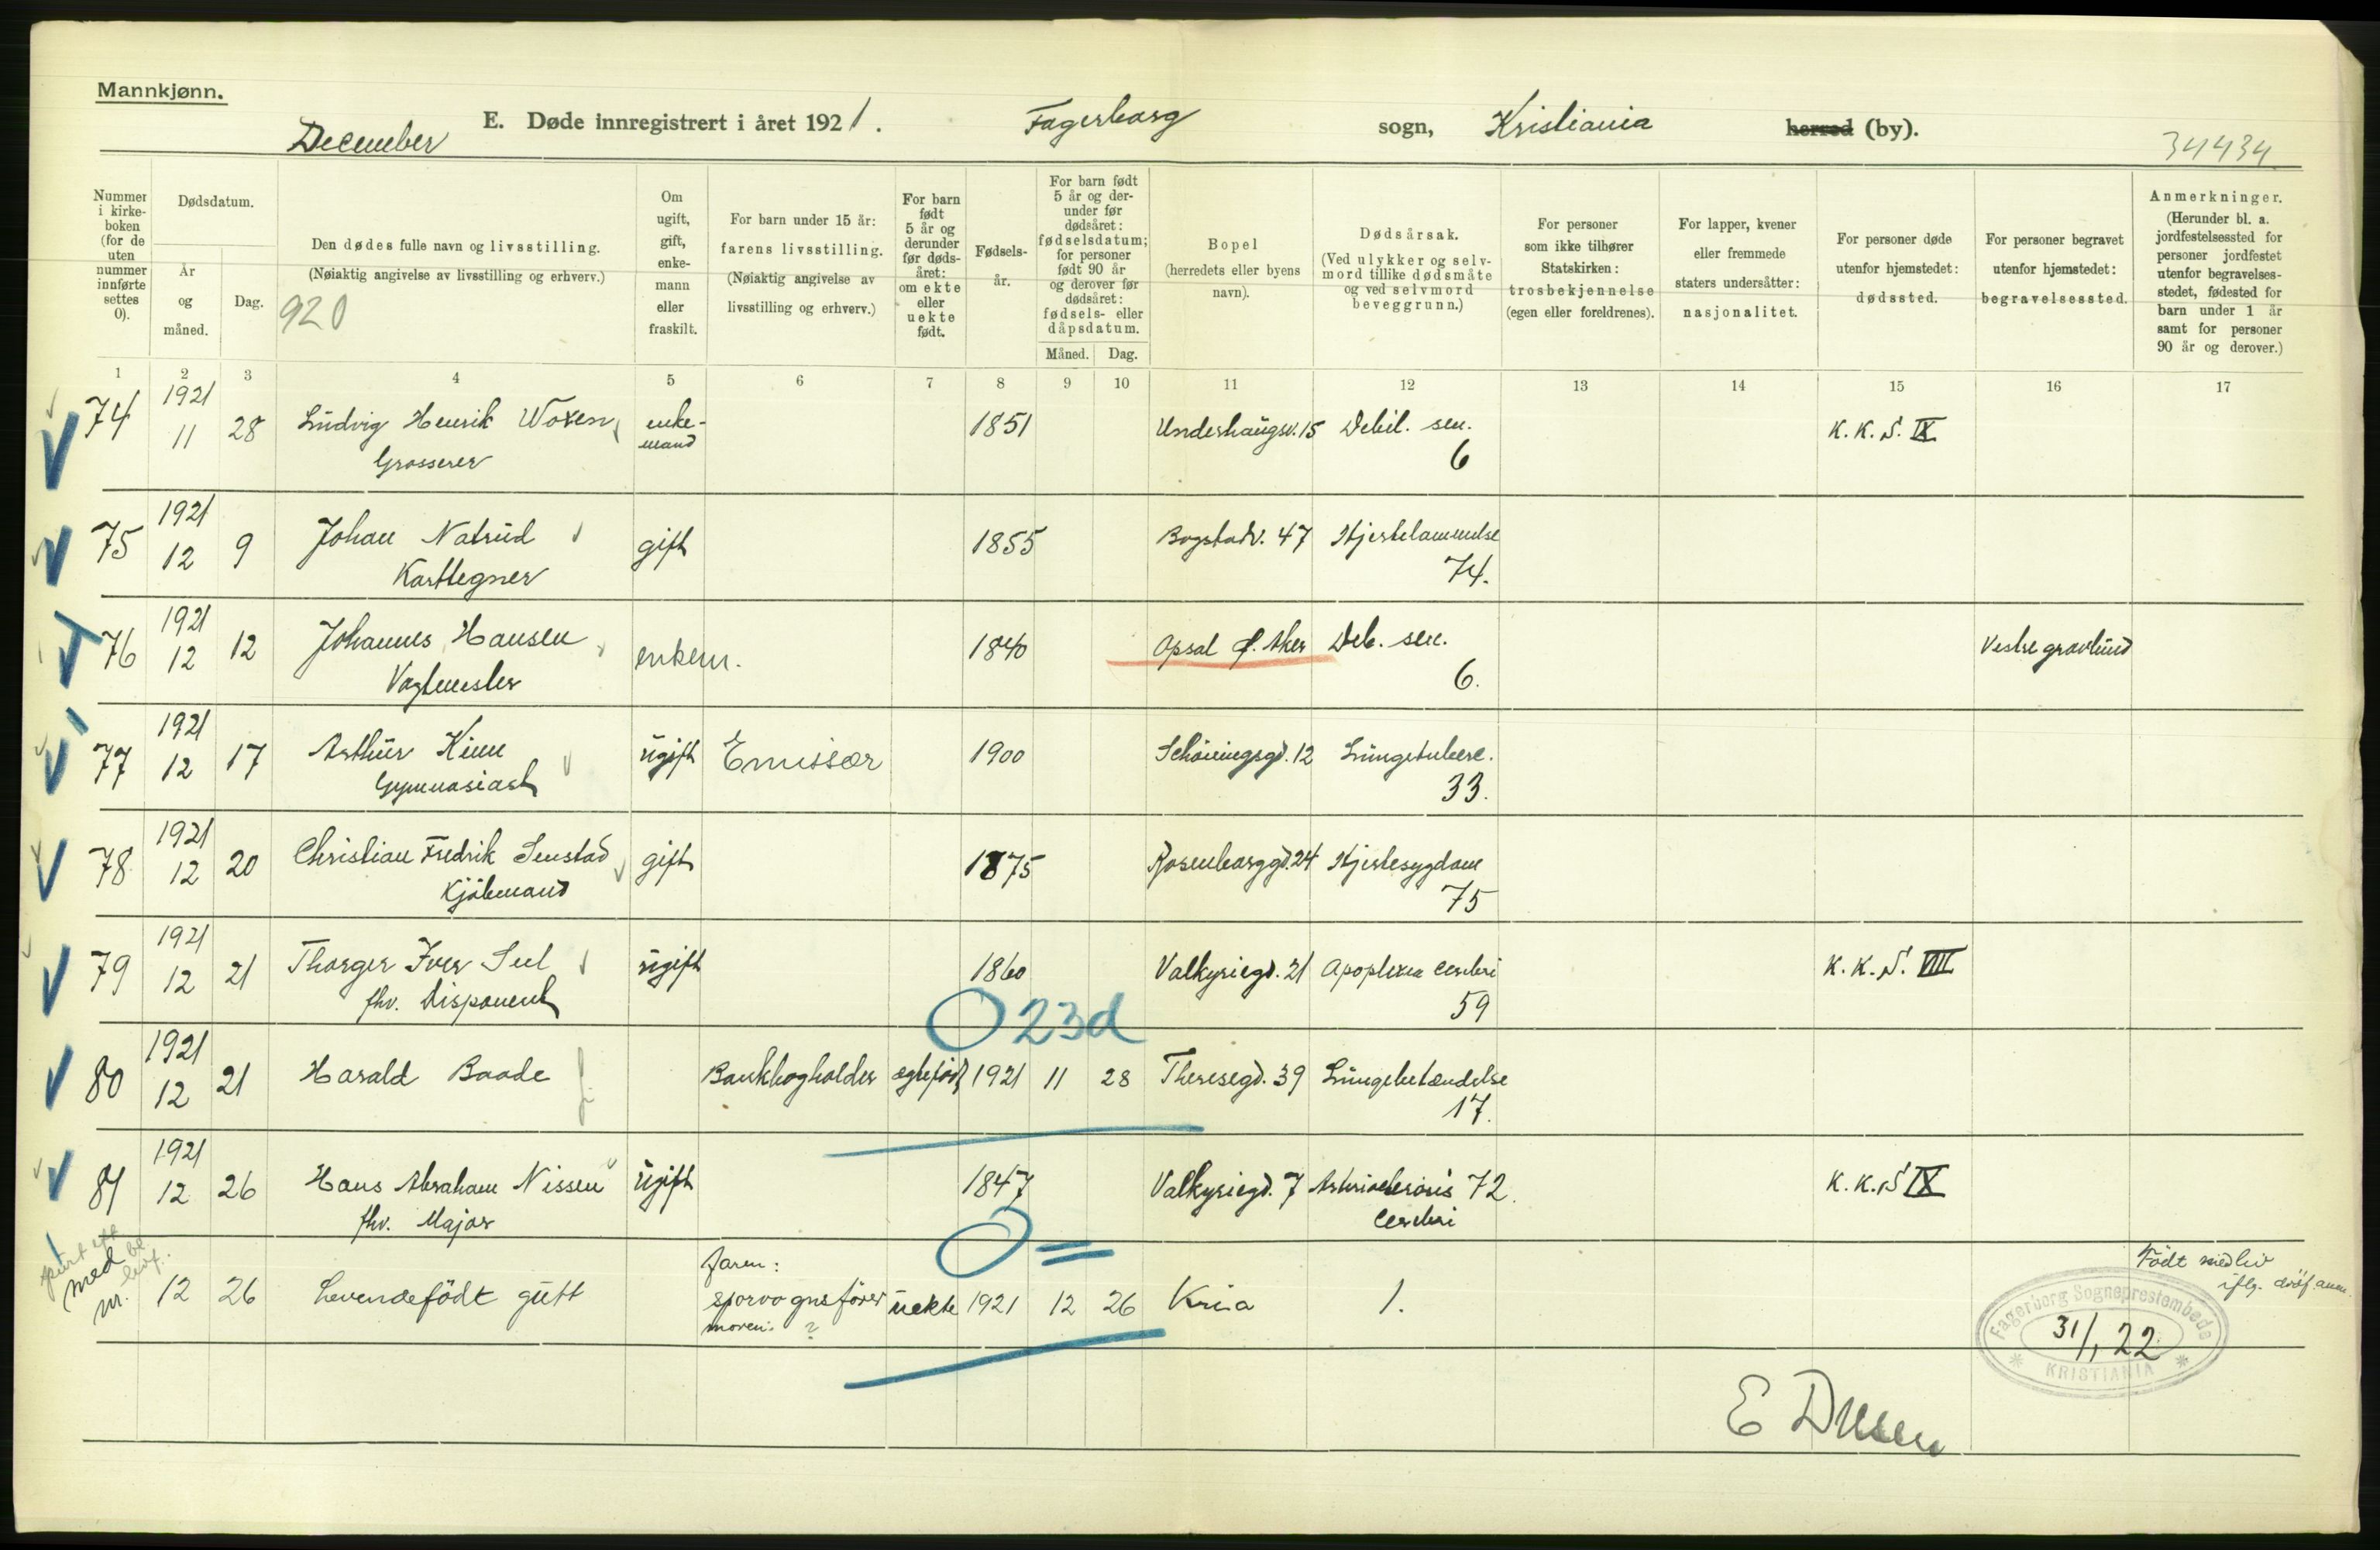 Mannkjønn.
December
E. Døde innregistrert i året 1921.
Fagerborg sogn, Kristiania herred (by).
34434
Nummer i kirke-boken (for de uten nummer innførte settes 0).
Dødsdatum.
År og måned.
Dag.
Den dødes fulle navn og livsstilling.
(Nøiaktig angivelse av livsstilling og erhverv.)
920
Om ugift, gift, enke-mann eller fraskilt.
For barn under 15 år:
farens livsstilling.
(Nøiaktig angivelse av livsstilling og erhverv.)
For barn født 5 år og derunder før døds-året: om ekte eller uekte født.
Fødsels-år.
For barn født 5 år og der-under før dødsåret: fødselsdatum; for personer født 90 år og derover før dødsåret: fødsels- eller dåpsdatum.
Måned.
Dag.
Bopel
(herredets eller byens navn).
Dødsårsak.
(Ved ulykker og selv-mord tillike dødsmåte og ved selvmord beveggrunn.)
For personer som ikke tilhører Statskirken:
trosbekjennelse
(egen eller foreldrenes).
For lapper, kvener eller fremmede staters undersåtter:
nasjonalitet.
For personer døde utenfor hjemstedet:
dødssted.
For personer begravet utenfor hjemstedet:
begravelsessted.
Anmerkninger.
(Herunder bl. a. jordfestelsessted for personer jordfestet utenfor begravelses-stedet, fødested for barn under 1 år samt for personer 90 år og derover.)
1 2 3 4 5 6 7 8 9 10 11 12 13 14 15 16 17
74 1921 11 28 Ludvig Henrik Woxen, enke- 1851 Underhaugsv. 15 Debil. sen. K. K. S. IX
Grosserer mand 6
75 1921 12 9 Johan Natrud gift 1855 Bogstadv. 47 Hjertelammelse
Karttegner 74.
76 1921 12 12 Johannes Hansen enkem. 1840 Opsal Ø. Aker Deb. sen. Vestre gravlund
Vagtmester 6.
77 1921 12 17 Arthur Kinn ugift Emissær 1900 Schöningsgd. 12 Lungetuberc.
Gymnasiast 33.
78 1921 12 20 Christian Fredrik Senstad gift 1875 Rosenborggd. 24 Hjertesygdom
Kjöbmand 75
79 1921 12 21 Thorger Iver Seel ugift 1860 Valkyriegd. 21 Apoplexia cerebri K. K. S. VIII
fhv. Disponent 59
O 23d
80 1921 12 21 Harald Baade Bankbogholder egtefödt 1921 11 28 Theresegd. 39 Lungebetændelse
17.
81 1921 12 26 Hans Abraham Nissen ugift 1847 Valkyriegd. 7 Arteriosclerosis 72. K. K. S IX
fhv. Major cerebri
O =
med nr. 12 26 Levendefödt gutt
faren: sporvognsförer
moren: ?
uekte 1921 12 26 Kr.ia 1.
Födt med liv
iflg.
Fagerborg Sogneprestembede
31/1 22
KRISTIANIA